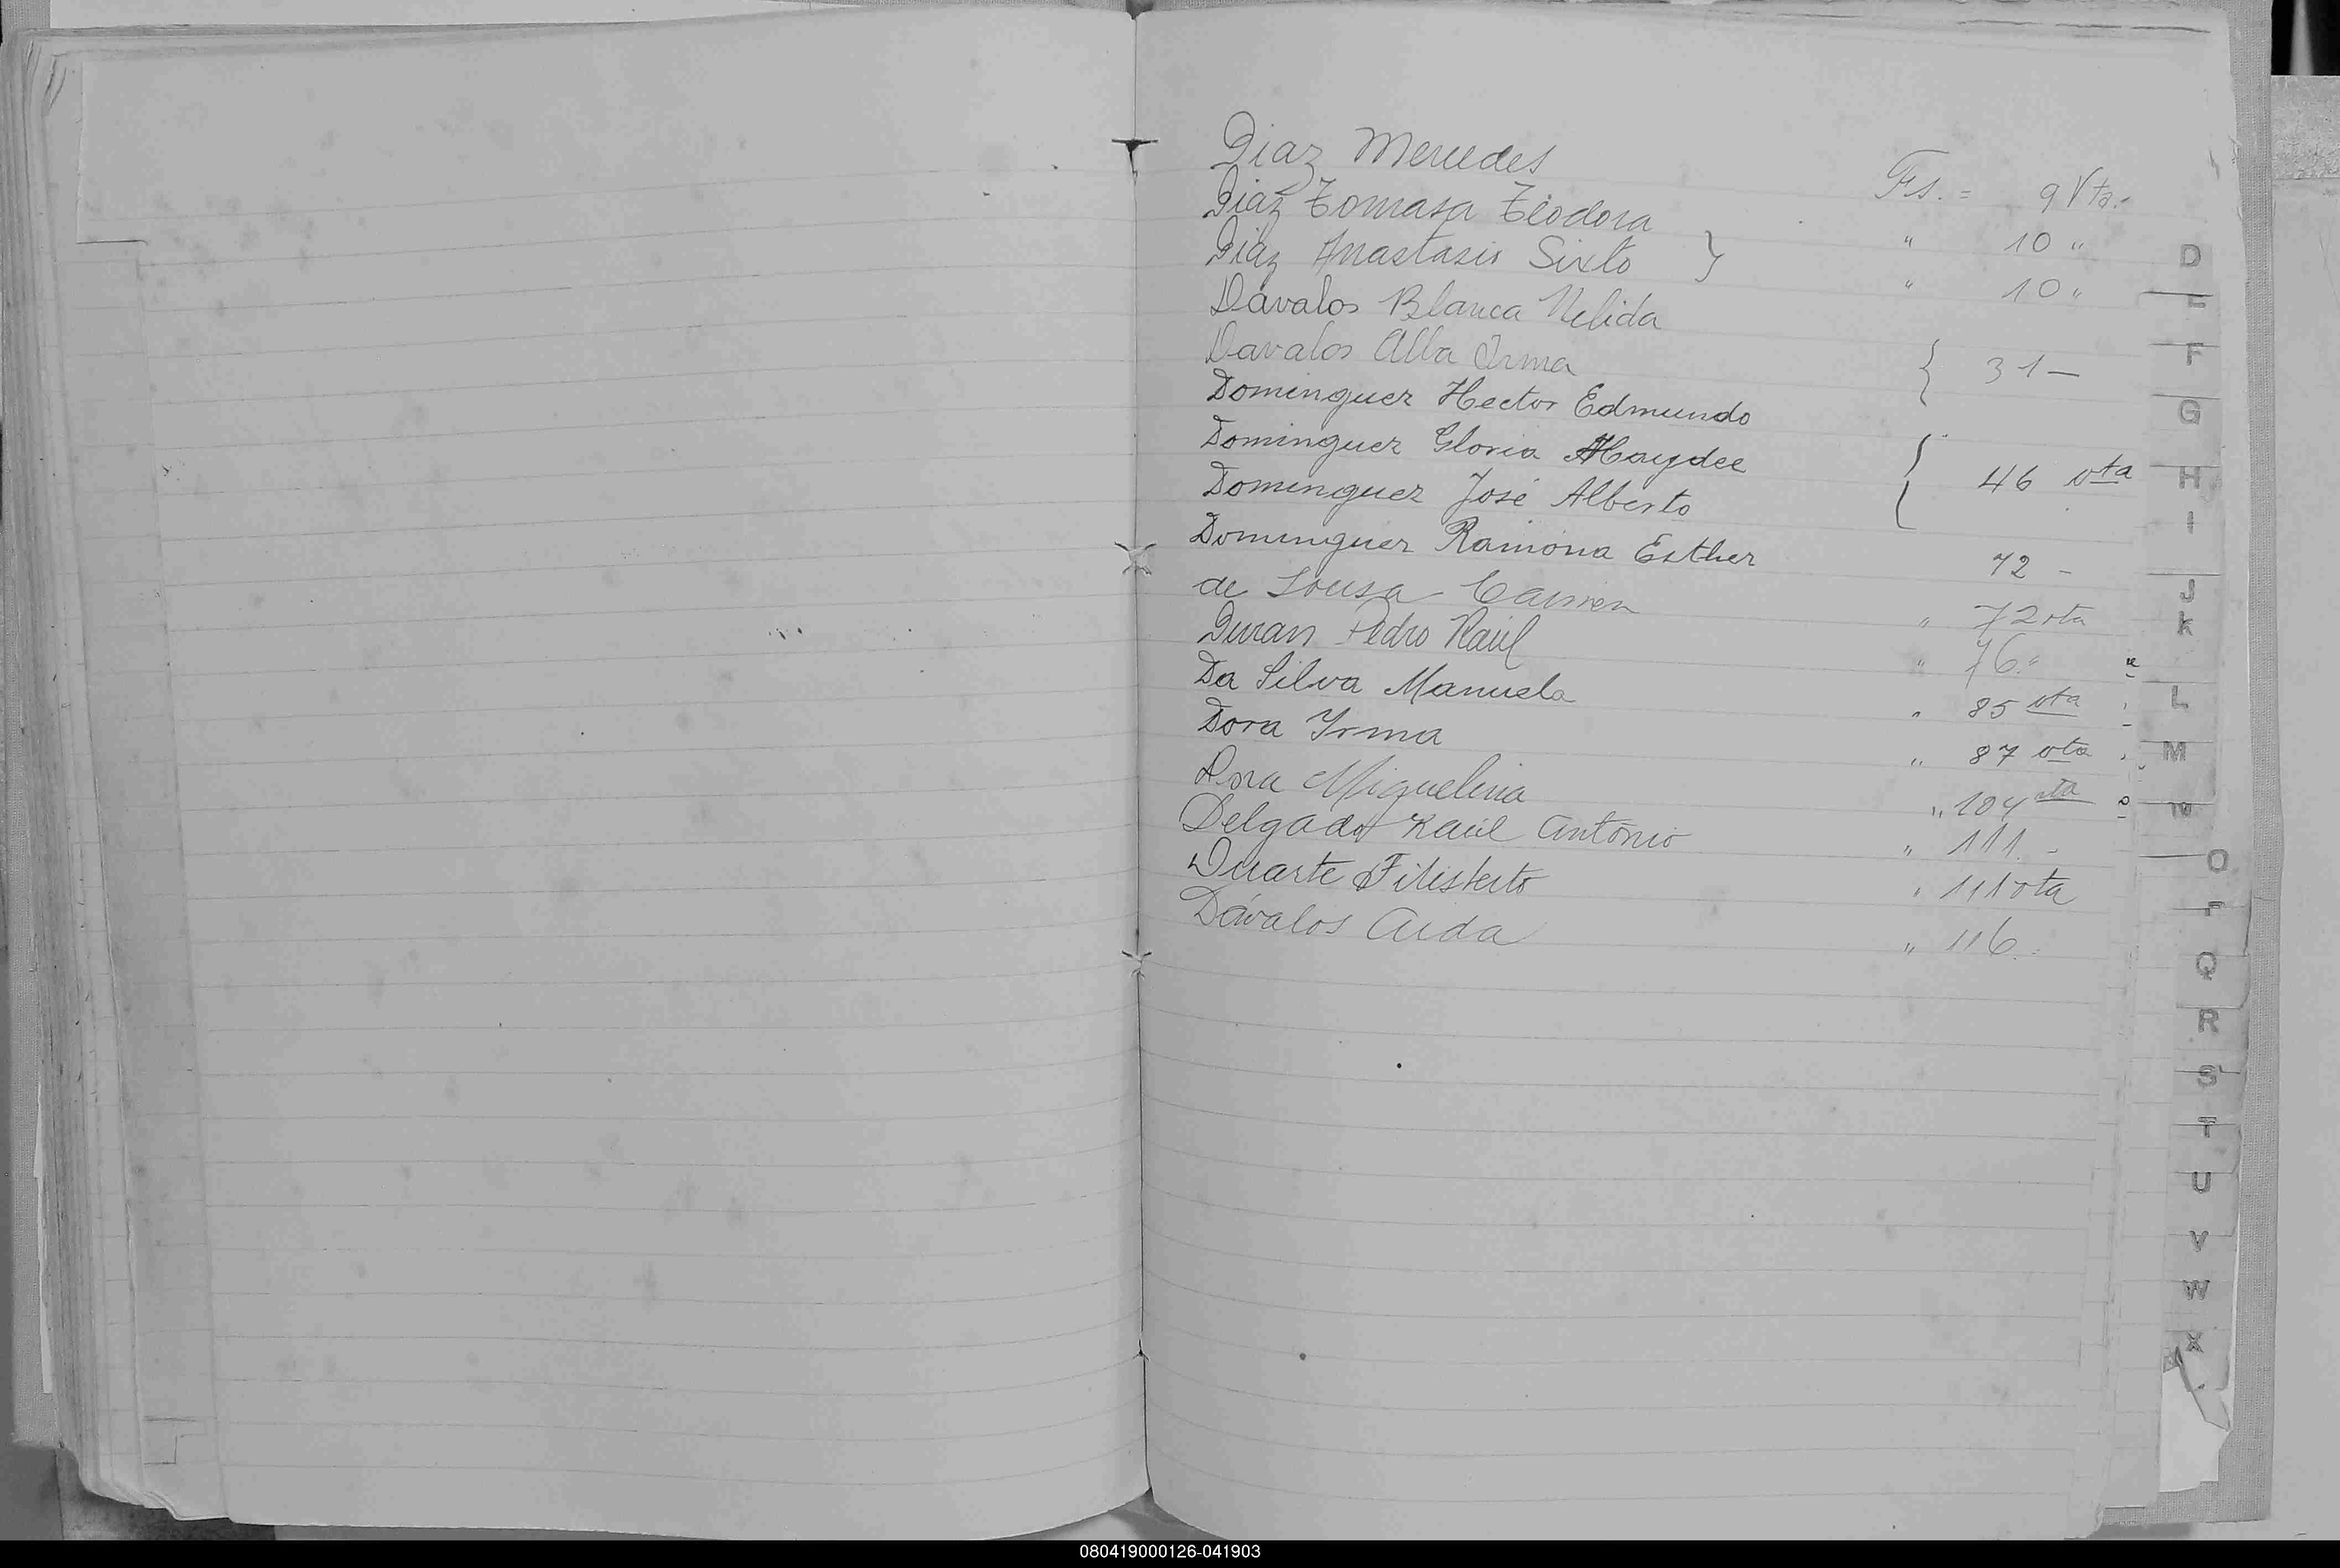 Diaz Mercedes Fs. = 9 Vta.-
Diaz Tomasa Teodora " 10 "
Diaz Anastasio Sixto } " 10 "
Dávalos Blanca Nelida
Davalos Alba Irma { 31 —
Dominguez Hector Edmundo
Dominguez Gloria Haydee { 46 vta
Dominguez José Alberto
Dominguez Ramona Esther 72 -
de Sousa Carmen " 72 vta
Duran Pedro Raúl " 76. "
Da Silva Manuela " 85 vta
Dora Irma " 87 vta
Dora Miguelina " 104 vta
Delgado Raúl Antonio " 111. -
Duarte Filisberto " 111 vta
Dávalos Aida " 116.
D
F
G
H
I
J
K
L
M
N
O
P
Q
R
S
T
U
V
W
X
080419000126-041903